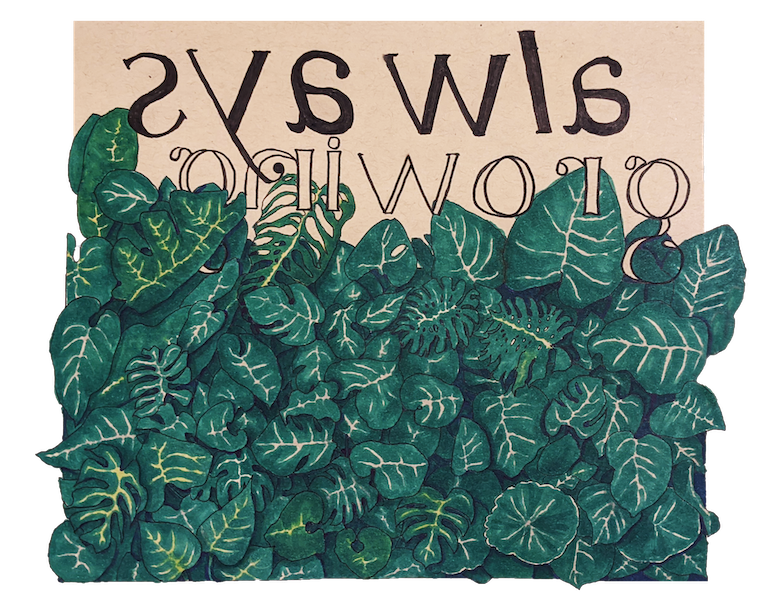 always
growing